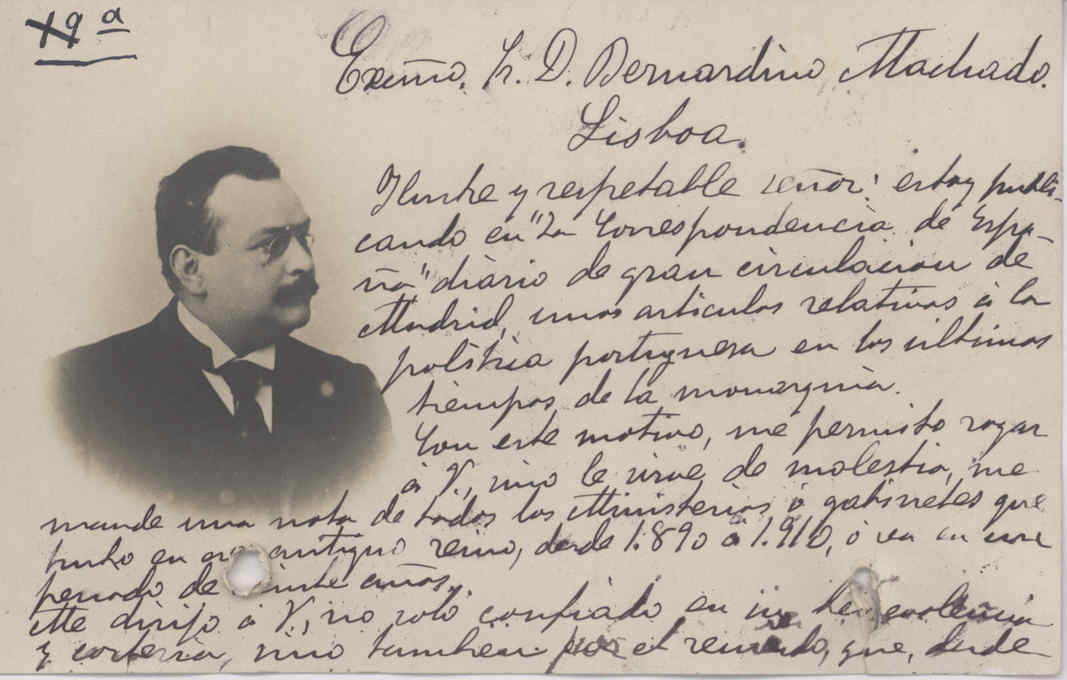 19ª
Exmo. Sr. D. Bernardino Machado.
Lisboa.
Ilustre y respetable señor: estoy publi-
cando en "La Correspondencia de Espa-
ña" diario de gran circulación de
Madrid, unos artículos relativos á la
política portuguesa en los últimos
tiempos de la monarquía.
Con este motivo, me permito rogar
á V., sino le sirve de molestia, me
mande una nota de todos los Ministerios ó gabinetes que
hubo en ese antiguo reino, desde 1.890 á 1.910, ó sea en un
periodo de veinte años.
Me dirijo á V., no solo confiado en su benevolencia
y cortesía, sino tambien por el recuerdo, que, desde